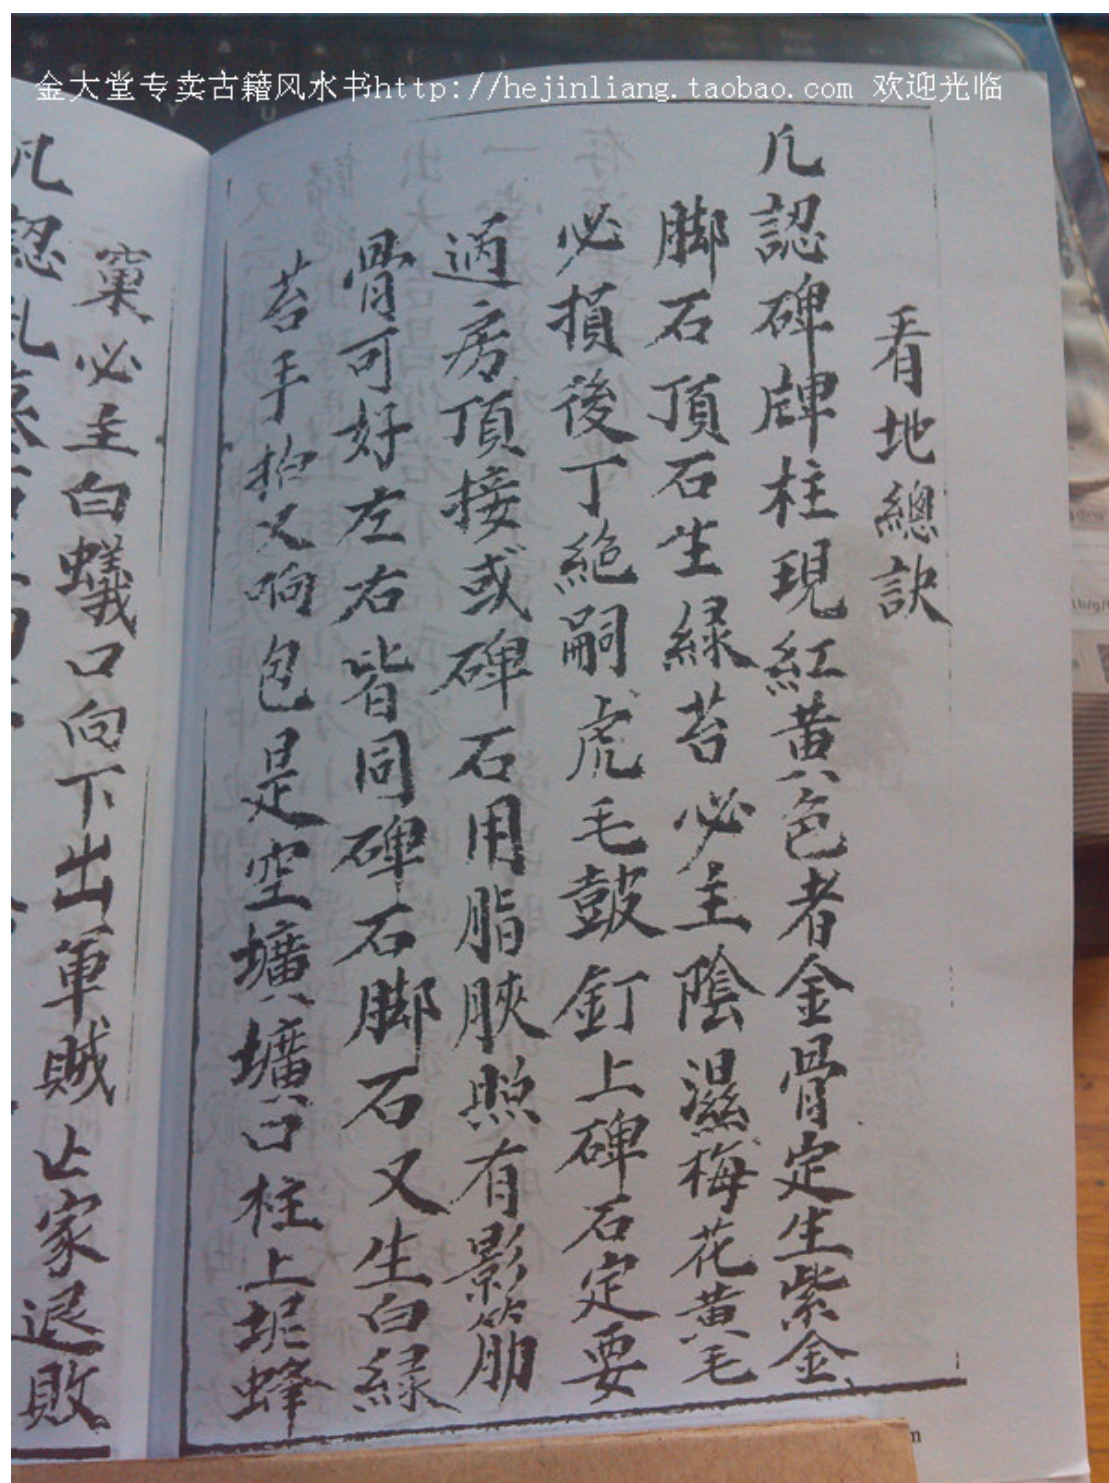 金大堂专卖古籍风水书http://hejinliang.taobao.com 欢迎光临
看地總訣
凡認碑牌柱現紅黄色者金骨定生紫金
脚石頂石生緑苔必主陰濕梅花黄毛
必損後丁絶嗣虎毛鼓釘上碑石定要
過房頂接或碑石用脂脥照有影筋
骨可好左右皆同碑石脚石又生白緑
苔手拍又响包是空壙壙口柱上坭蜂
窠必主白蟻口向下出軍賊亡家退敗
凡認